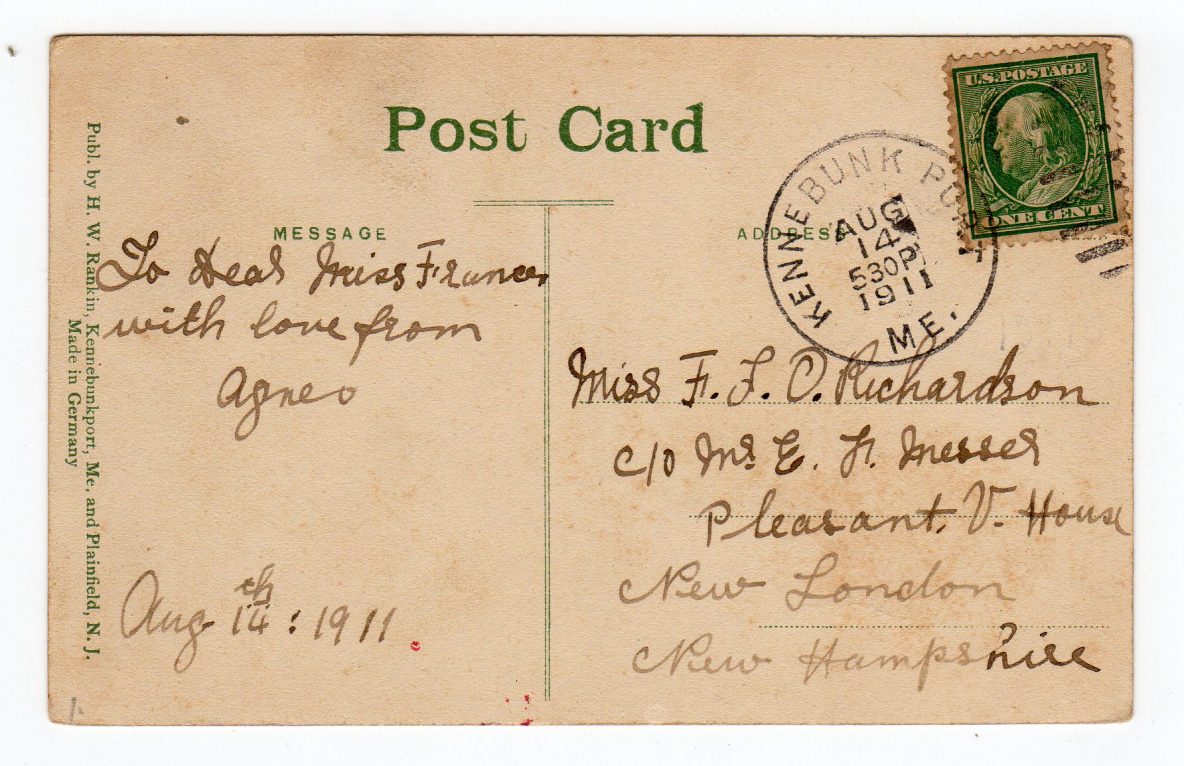 Post Card
U.S. POSTAGE
ONE CENT
KENNEBUNK PORT
AUG
14
530P
1911
ME.
MESSAGE
ADDRESS
To Dear Miss Frances
with love from
Agnes
Aug 14th : 1911
Miss F. F. O. Richardson
c/o Mrs E. H. Messer
Pleasant. V. House
New London
New Hampshire
Publ. by H. W. Rankin, Kennebunkport, Me. and Plainfield, N. J.
Made in Germany